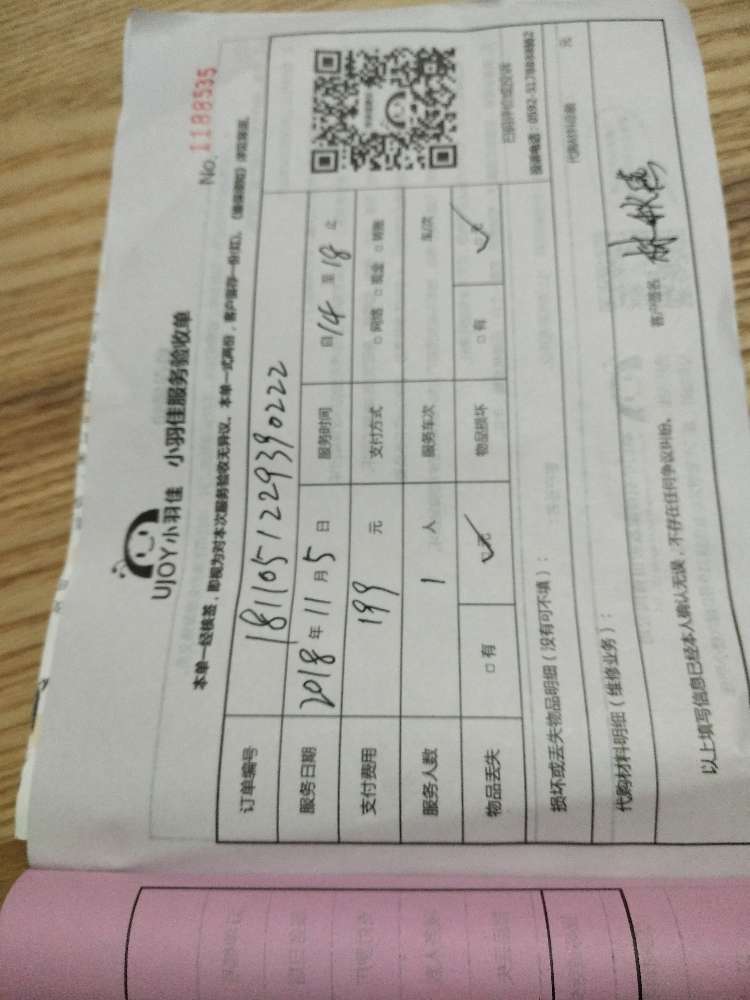 UJOY小羽佳 小羽佳服务验收单
No. 1188535
本单一经核签,即视为对本次服务验收无异议。本单一式两份,客户留存一份(红)。
订单编号 181105122939 0222
服务日期 2018年11月5日 服务时间 自14至18止
支付费用 199元 支付方式 □网络 □现金 □转账
服务人数 1人 服务车次 车/次
物品丢失 □有 物品损坏 □有
投诉电话:0592-5178888
损坏或丢失物品明细(没有可不填):
代购材料明细(维修业务): 代购材料总额 元
以上填写信息已经本人确认无误,不存在任何争议纠纷。 客户签名